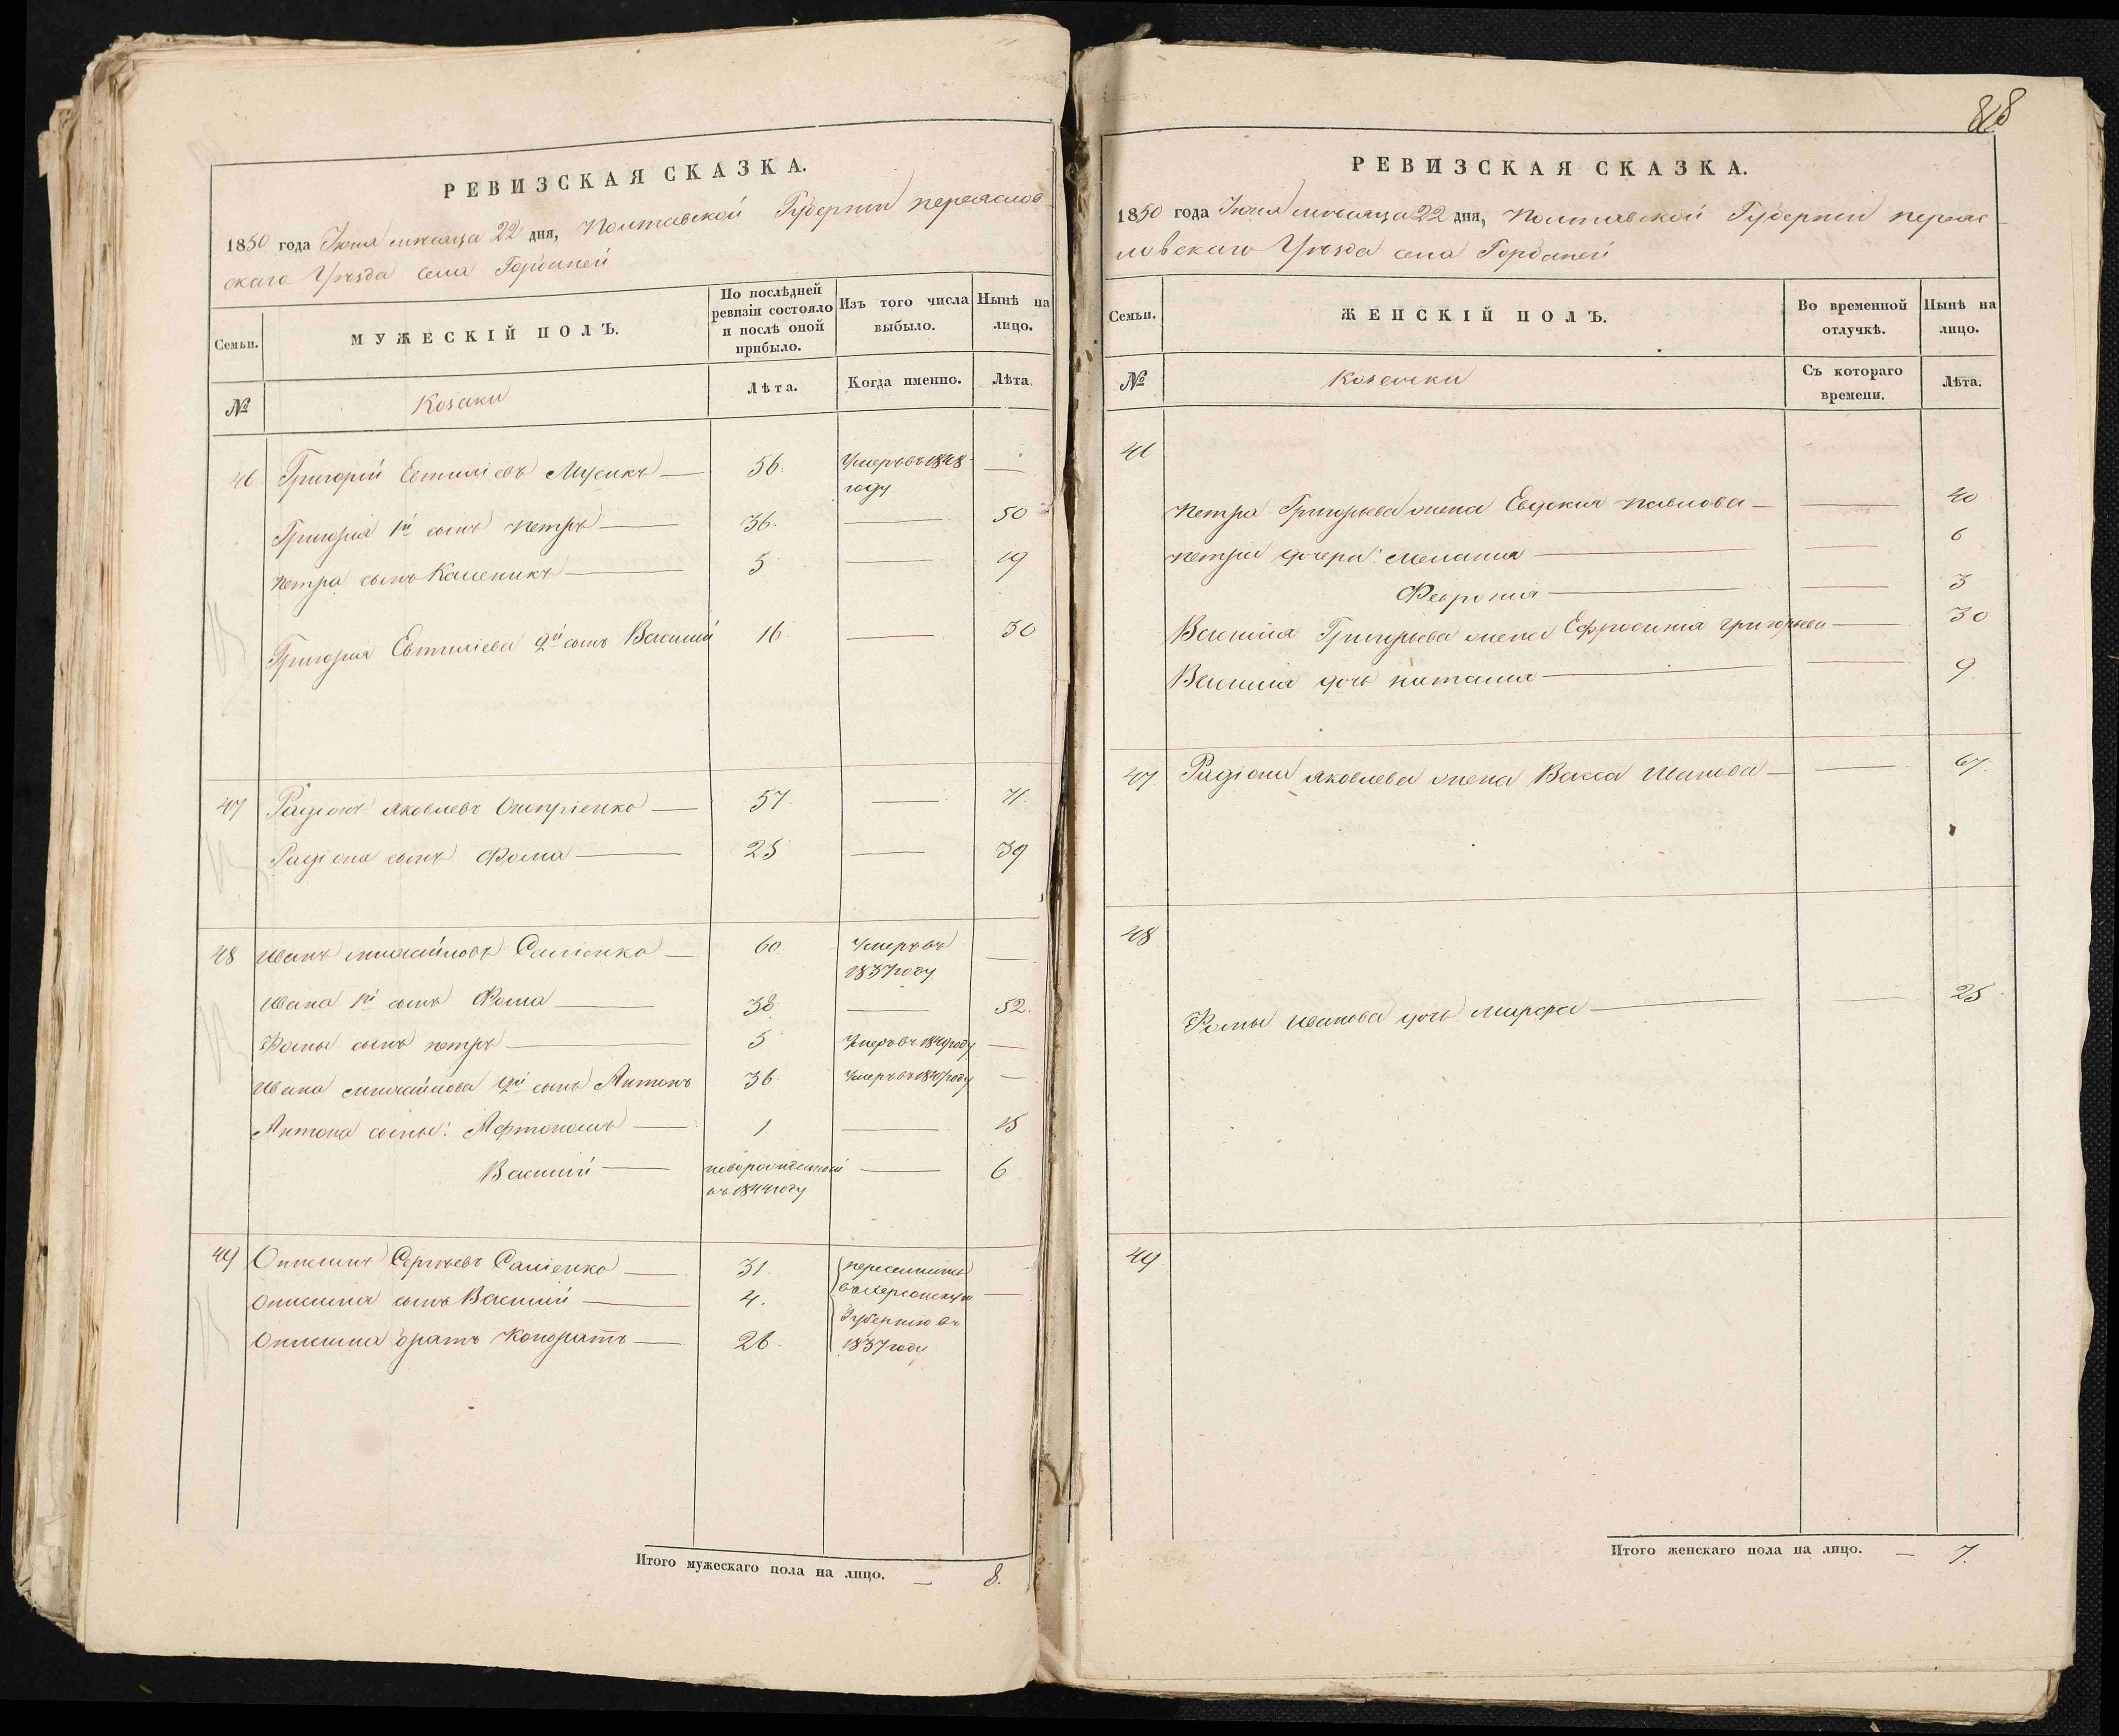 РЕВИЗСКАЯ СКАЗКА.
1850 года Іюня мѣсяца 22 дня, Полтавской Губерніи переяслов
скаго Уѣзда села Горбаней
Семьи.
МУЖЕСКІЙ ПОЛЪ.
По послѣдней ревизіи состояло и послѣ оной прибыло.
Изъ того числа выбыло.
Нынѣ на лицо.
№
Козаки
Лѣта.
Когда именно.
Лѣта.
46 Григорій Евтихіевъ Мусикъ — 56. Умеръ въ 1848 году —
Григорія 1й сынъ Петръ — 36. — 50
Петра сынъ Каленикъ — 5 — 19
Григорія Евтихіева 2й сынъ Василій 16. — 30
47 Радіонъ Яковлевъ Онопріенко — 57. — 71.
Радіона сынъ Фома — 25 — 39
48 Иванъ Михайловъ Саліенко — 60 Умеръ въ 1837 году —
Ивана 1й сынъ Фома — 38. — 52.
Фомы сынъ Петръ — 5 Умеръ въ 1849 году —
Ивана Михайлова 2й сынъ Антонъ 36. Умеръ въ 1847 году —
Антона сыны: Афтономъ — 1. — 15
Василій — новорожденный въ 1844 году — 6
49 Онисимъ Сергѣевъ Саліенко — 31. переселились
Онисима сынъ Василій — 4. въ Херсонскую —
Онисима братъ Кондратъ — 26. Губернію въ 1837 году
Итого мужескаго пола на лицо. — 8.
РЕВИЗСКАЯ СКАЗКА.
1850 года Іюня мѣсяца 22 дня, Полтавской Губерніи переяс
ловскаго Уѣзда села Горбаней
Семьи.
ЖЕНСКІЙ ПОЛЪ.
Во временной отлучкѣ.
Нынѣ на лицо.
№
Козачки
Съ котораго времени.
Лѣта.
46
Петра Григорьева жена Евдокія Павлова — — 40
Петра дочери: Меланія — — 6
Февронія — — 3
Василія Григорьева жена Ефросинія Григорьева — — 30
Василія дочь Наталія — — 9
47 Радіона Яковлева жена Васса Иванова — — 67.
48
Фомы Иванова дочь Марфа — — 25
49
Итого женскаго пола на лицо. — 7.